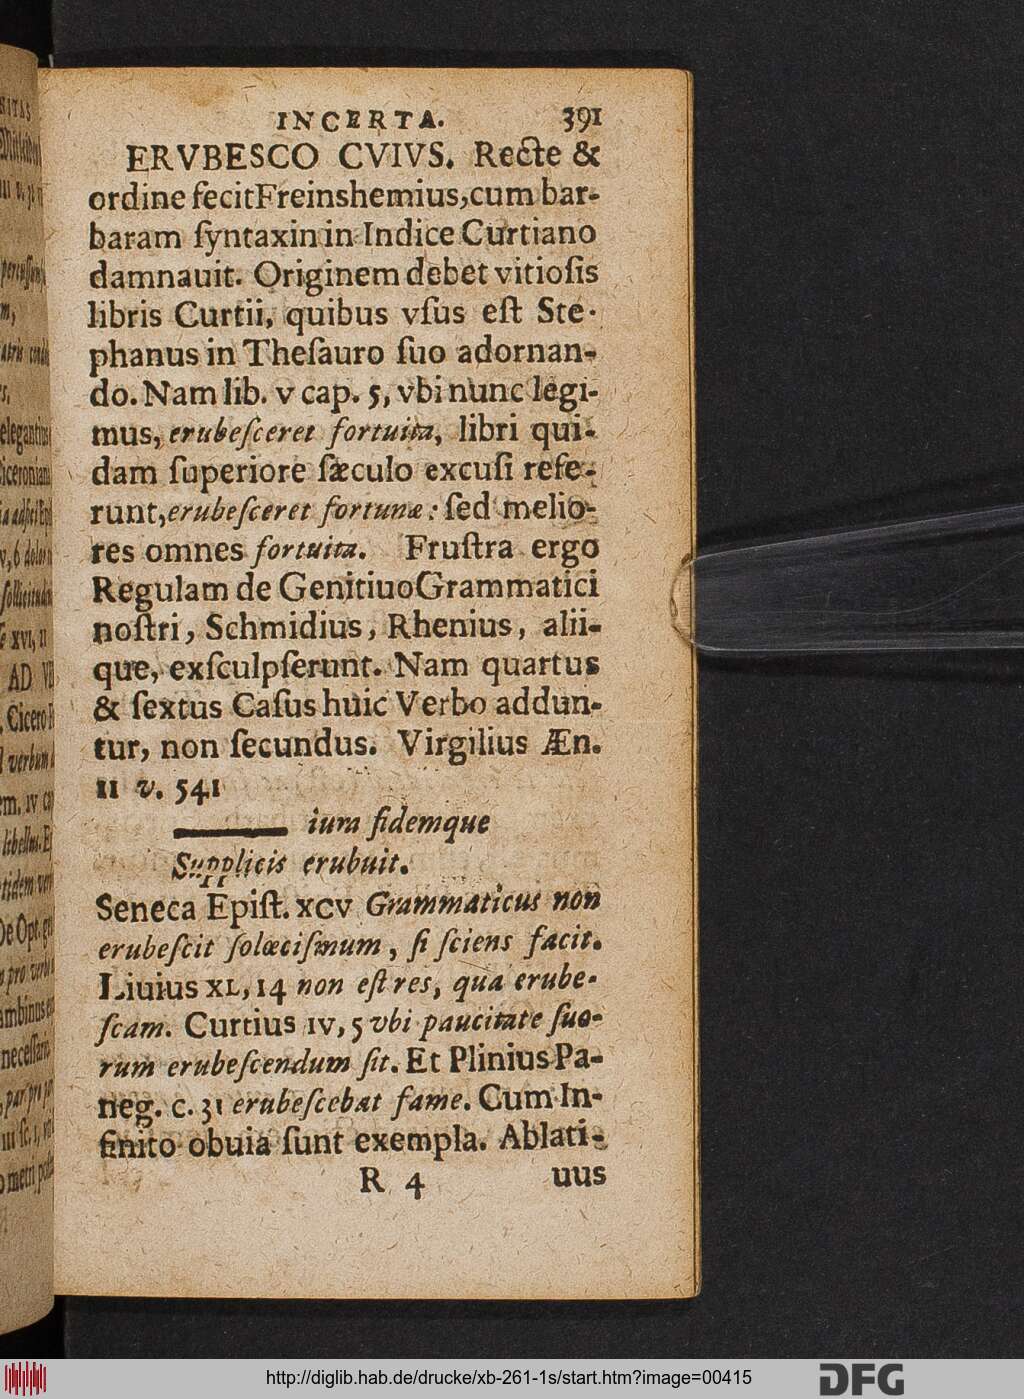 INCERTA. 391
ERVBESCO CVIVS. Recte &
ordine fecit Freinshemius, cum bar-
baram ſyntaxin in Indice Curtiano
damnauit. Originem debet vitioſis
libris Curtii, quibus vſus eſt Ste-
phanus in Theſauro ſuo adornan-
do. Nam lib. v cap. 5, vbi nunc legi-
mus, erubeſceret fortuita, libri qui-
dam ſuperiore ſæculo excuſi refe-
runt, erubeſceret fortunæ: ſed melio-
res omnes fortuita. Fruſtra ergo
Regulam de Genitiuo Grammatici
noſtri, Schmidius, Rhenius, alii-
que, exſculpſerunt. Nam quartus
& ſextus Caſus huic Verbo addun-
tur, non ſecundus. Virgilius Æn.
II v. 541
iura fidemque
Supplicis erubuit.
Seneca Epiſt. XCV Grammaticus non
erubeſcit ſolœciſmum, ſi ſciens facit.
Liuius XL, 14 non eſt res, qua erube-
ſcam. Curtius IV, 5 vbi paucitate ſuo-
rum erubeſcendum ſit. Et Plinius Pa-
neg. c. 31 erubeſcebat fame. Cum In-
finito obuia ſunt exempla. Ablati-
R 4 uus
http://diglib.hab.de/drucke/xb-261-1s/start.htm?image=00415
DFG